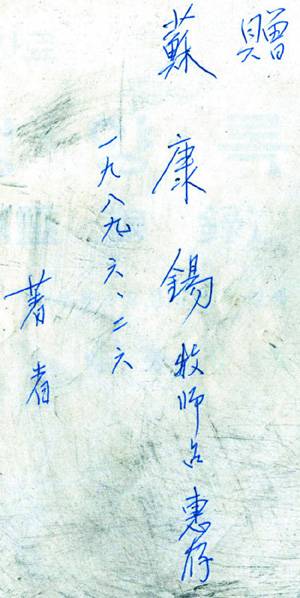 贈
蘇康錫牧師台惠存
一九八九六、二六
著者